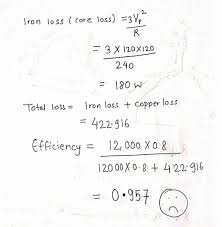 Iron loss (core loss) = 3Vp²
R
= 3 X 120X120
240
= 180 W
Total loss = Iron loss + copper loss
= 422.916
Efficiency = 12,000 X 0.8
12000X0.8 + 422.916
= 0.957